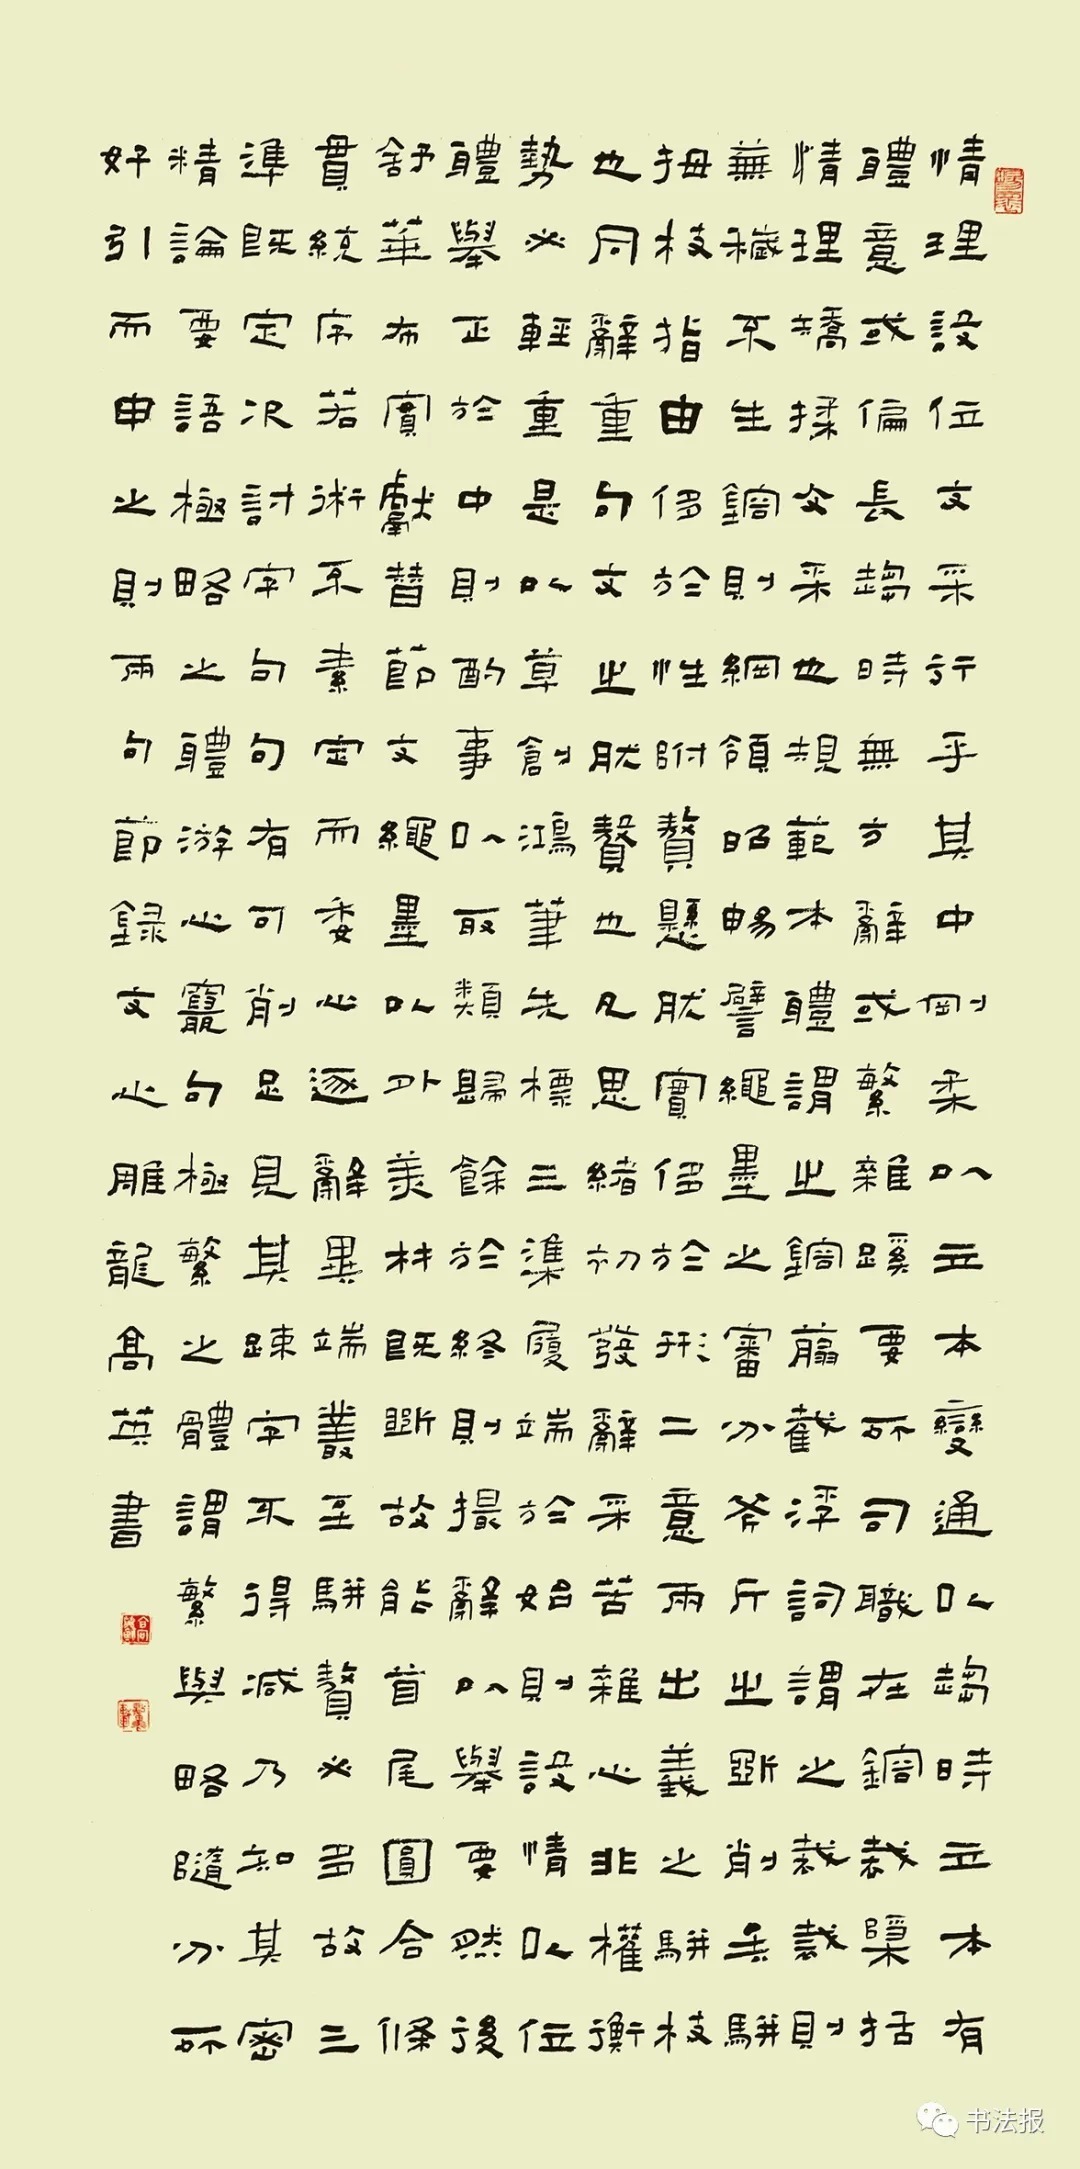 情理設位文采行乎其中剛柔以立本變通以趨時立本有
體意或偏長趨時無方辭或繁雜蹊要所司職在鎔裁檃括
情理矯揉文采也規範本體謂之鎔翦截浮詞謂之裁裁則
蕪穢不生鎔則綱領昭暢譬繩墨之審分斧斤之斲削矣駢
拇枝指由侈於性附贅懸肬實侈於形二意兩出義之駢枝
也同辭重句文之肬贅也凡思緒初發辭采苦雜心非權衡
勢必輕重是以草創鴻筆先標三準履端於始則設情以位
體舉正於中則酌事以取類歸餘於終則撮辭以舉要然後
舒華布實獻替節文繩墨以外美材既斲故能首尾圓合條
貫統序若術不素定而委心逐辭異端叢至駢贅必多故三
準既定次討字句句有可削足見其踈字不得減乃知其密
精論要語極略之體游心竄句極繁之體謂繁與略隨分所
好引而申之則兩句節錄文心雕龍高英書
书法报